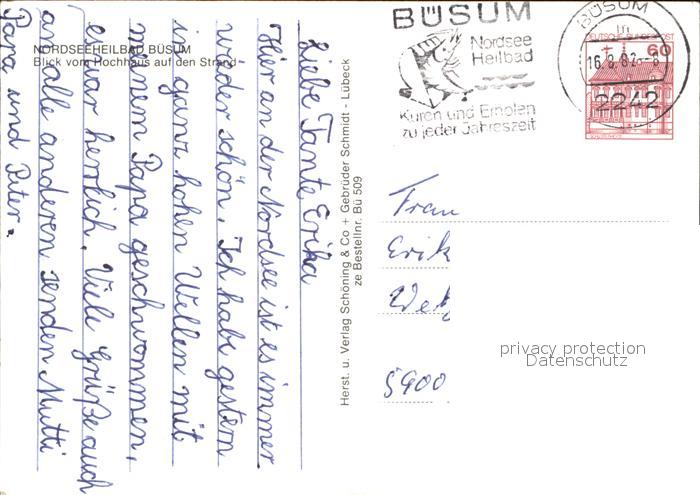 NORDSEEHEILBAD BÜSUM
Blick vom Hochhaus auf den Strand
Liebe Tante Erika
Hier an der Nordsee ist es immer
wieder schön. Ich habe gestern
in ganz hohen Wellen mit
meinem Papa geschwommen,
es war herrlich. Viele Grüße auch
an alle anderen senden Mutti
Papa und Peter.
Herst. u. Verlag Schöning & Co + Gebrüder Schmidt - Lübeck
ze Bestellnr. Bü 509
BÜSUM
Nordsee
Heilbad
Kuren und Erholen
zu jeder Jahreszeit
BÜSUM
16.8.82-8
2242
DEUTSCHE BUNDESPOST
60
Frau
Erik
5900
privacy protection
Datenschutz